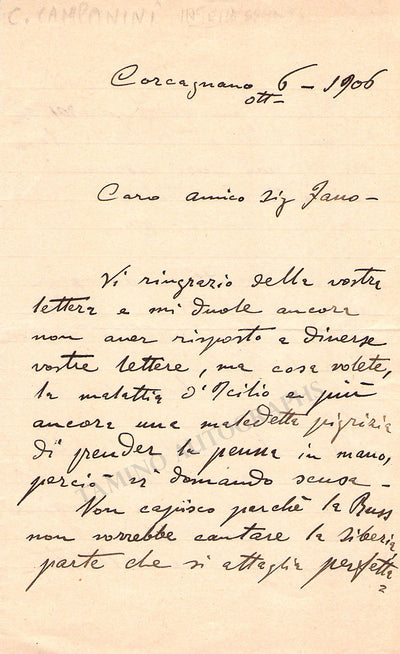 C. CAMPANINI
Corcagnano 6 - 1906
ott-
Caro amico Sig Fano -
Vi ringrazio della vostra
lettera e mi duole ancora
non aver risposto a diverse
vostre lettere, ma cosa volete,
la malattia d'Icilio e più
ancora una maledetta pigrizia
di prender la penna in mano,
perciò vi domando scusa -
Non capisco perchè la Buss
non vorrebbe cantare la Siberia,
parte che si attaglia perfetta
TAMINO AUTOGRAPHS